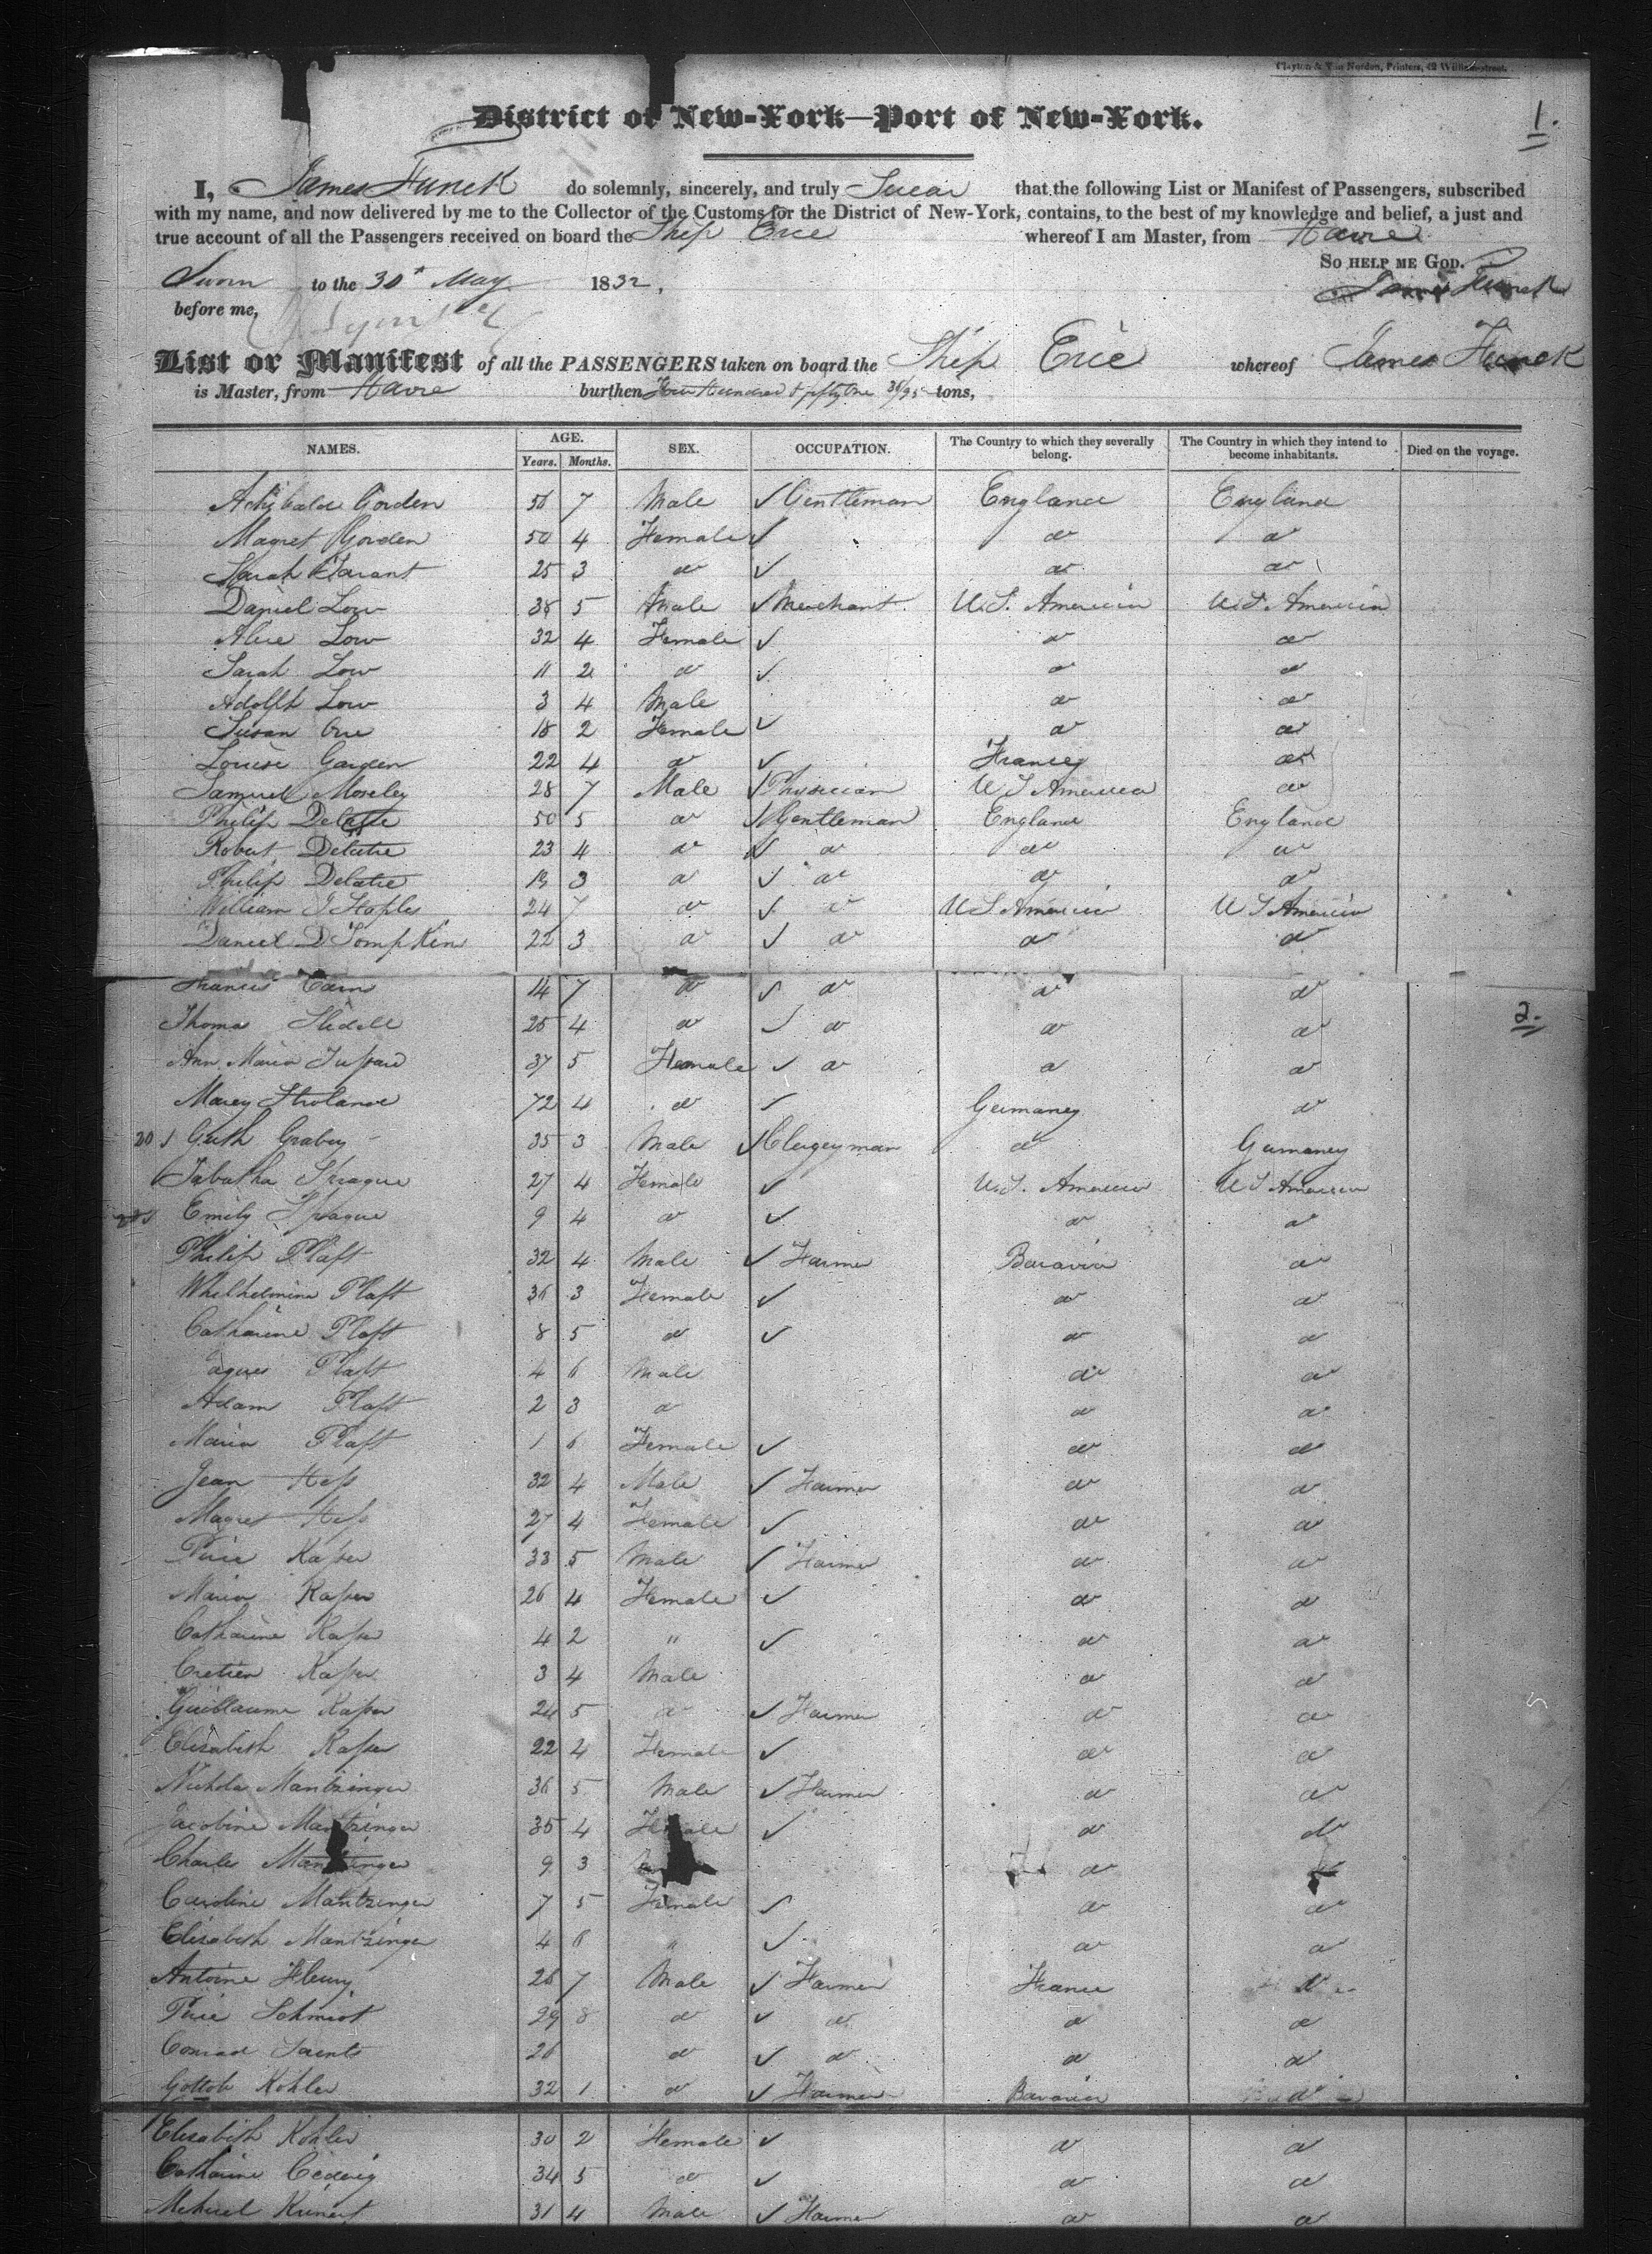 Clayton & Van Norden, Printers, 42 William-street.
District of New-York—Port of New-York.
1.
I, James Funck do solemnly, sincerely, and truly Swear that the following List or Manifest of Passengers, subscribed
with my name, and now delivered by me to the Collector of the Customs for the District of New-York, contains, to the best of my knowledge and belief, a just and
true account of all the Passengers received on board the Ship Erie whereof I am Master, from Havre
SO HELP ME GOD.
Sworn to the 30t May 1832, James Funck
before me,
List or Manifest of all the PASSENGERS taken on board the Ship Erie whereof James Funck
is Master, from Havre burthen Four Hundred & fifty One 36/95 tons,
NAMES. AGE. Years. Months. SEX. OCCUPATION. The Country to which they severally belong. The Country in which they intend to become inhabitants. Died on the voyage.
Gorden 56 7 Male ✓ Gentleman England England
Magret Gorden 50 4 Female ✓ do do
Sarah Tarant 25 3 do ✓ do do
Daniel Low 38 5 Male ✓ Merchant U.S. America U.S. America
Alice Low 32 4 Female ✓ do do
Sarah Low 11 2 do ✓ do do
Adolph Low 3 4 Male do do
Susan 18 2 Female ✓ do do
Louise Garden 22 4 do ✓ France do
Samuel Moseley 28 7 Male ✓ Physician U S America do
Philip Delatre 50 5 do ✓ Gentleman England England
Robert Delatre 23 4 do ✓ do do do
Philip Delatre 3 do ✓ do do do
William J Staples 24 7 do ✓ do U S America U S America
Daniel D Tompkin 22 3 do ✓ do do do
Francis 14 7 do ✓ do do do
2.
Thomas Slidell 25 4 do ✓ do do do
Ann Maria 37 5 Female ✓ do do do
Marey 72 4 do ✓ Germaney do
20 Guth Grabey 35 3 Male ✓ Clergeyman do Germaney
Tabatha Sprague 27 4 Female ✓ U.S. America U S America
Emily Sprague 9 4 do ✓ do do
Philip Plaft 32 4 Male ✓ Farmer Bavaria do
Whelhelmina Plaft 36 3 Female ✓ do do
Catharine Plaft 8 5 do ✓ do do
Plaft 4 6 Male do do
Adam Plaft 2 3 do do do
Maria Plaft 1 6 Female ✓ do do
Jean Hess 32 4 Male ✓ Farmer do do
Magret Hess 27 4 Female ✓ do do
Kasper 33 5 Male ✓ Farmer do do
Maria Kasper 26 4 Female ✓ do do
Catharine Kasper 4 2 " ✓ do do
Cretien Kasper 3 4 Male do do
Guillaume Kasper 24 5 do ✓ Farmer do do
Elizabeth Kasper 22 4 Female ✓ do do
Nichola Mantzinger 36 5 Male ✓ Farmer do do
Jacobine Mantzinger 35 4 Female ✓ do do
Charles Mantzinger 9 3 do
Caroline Mantzinger 7 5 Female ✓ do do
Elizabeth Mantzinger 4 6 " ✓ do do
Antoine Fleury 26 7 Male ✓ Farmer France do
Schmidt 29 8 do ✓ do do do
Conrad 26 do ✓ do do do
Gottob Kohler 32 1 do ✓ Farmer Bavaria do
Elizabeth Kohler 30 2 Female ✓ do do
Catharine 34 5 do ✓ do do
Kunert 31 4 Male ✓ Farmer do do